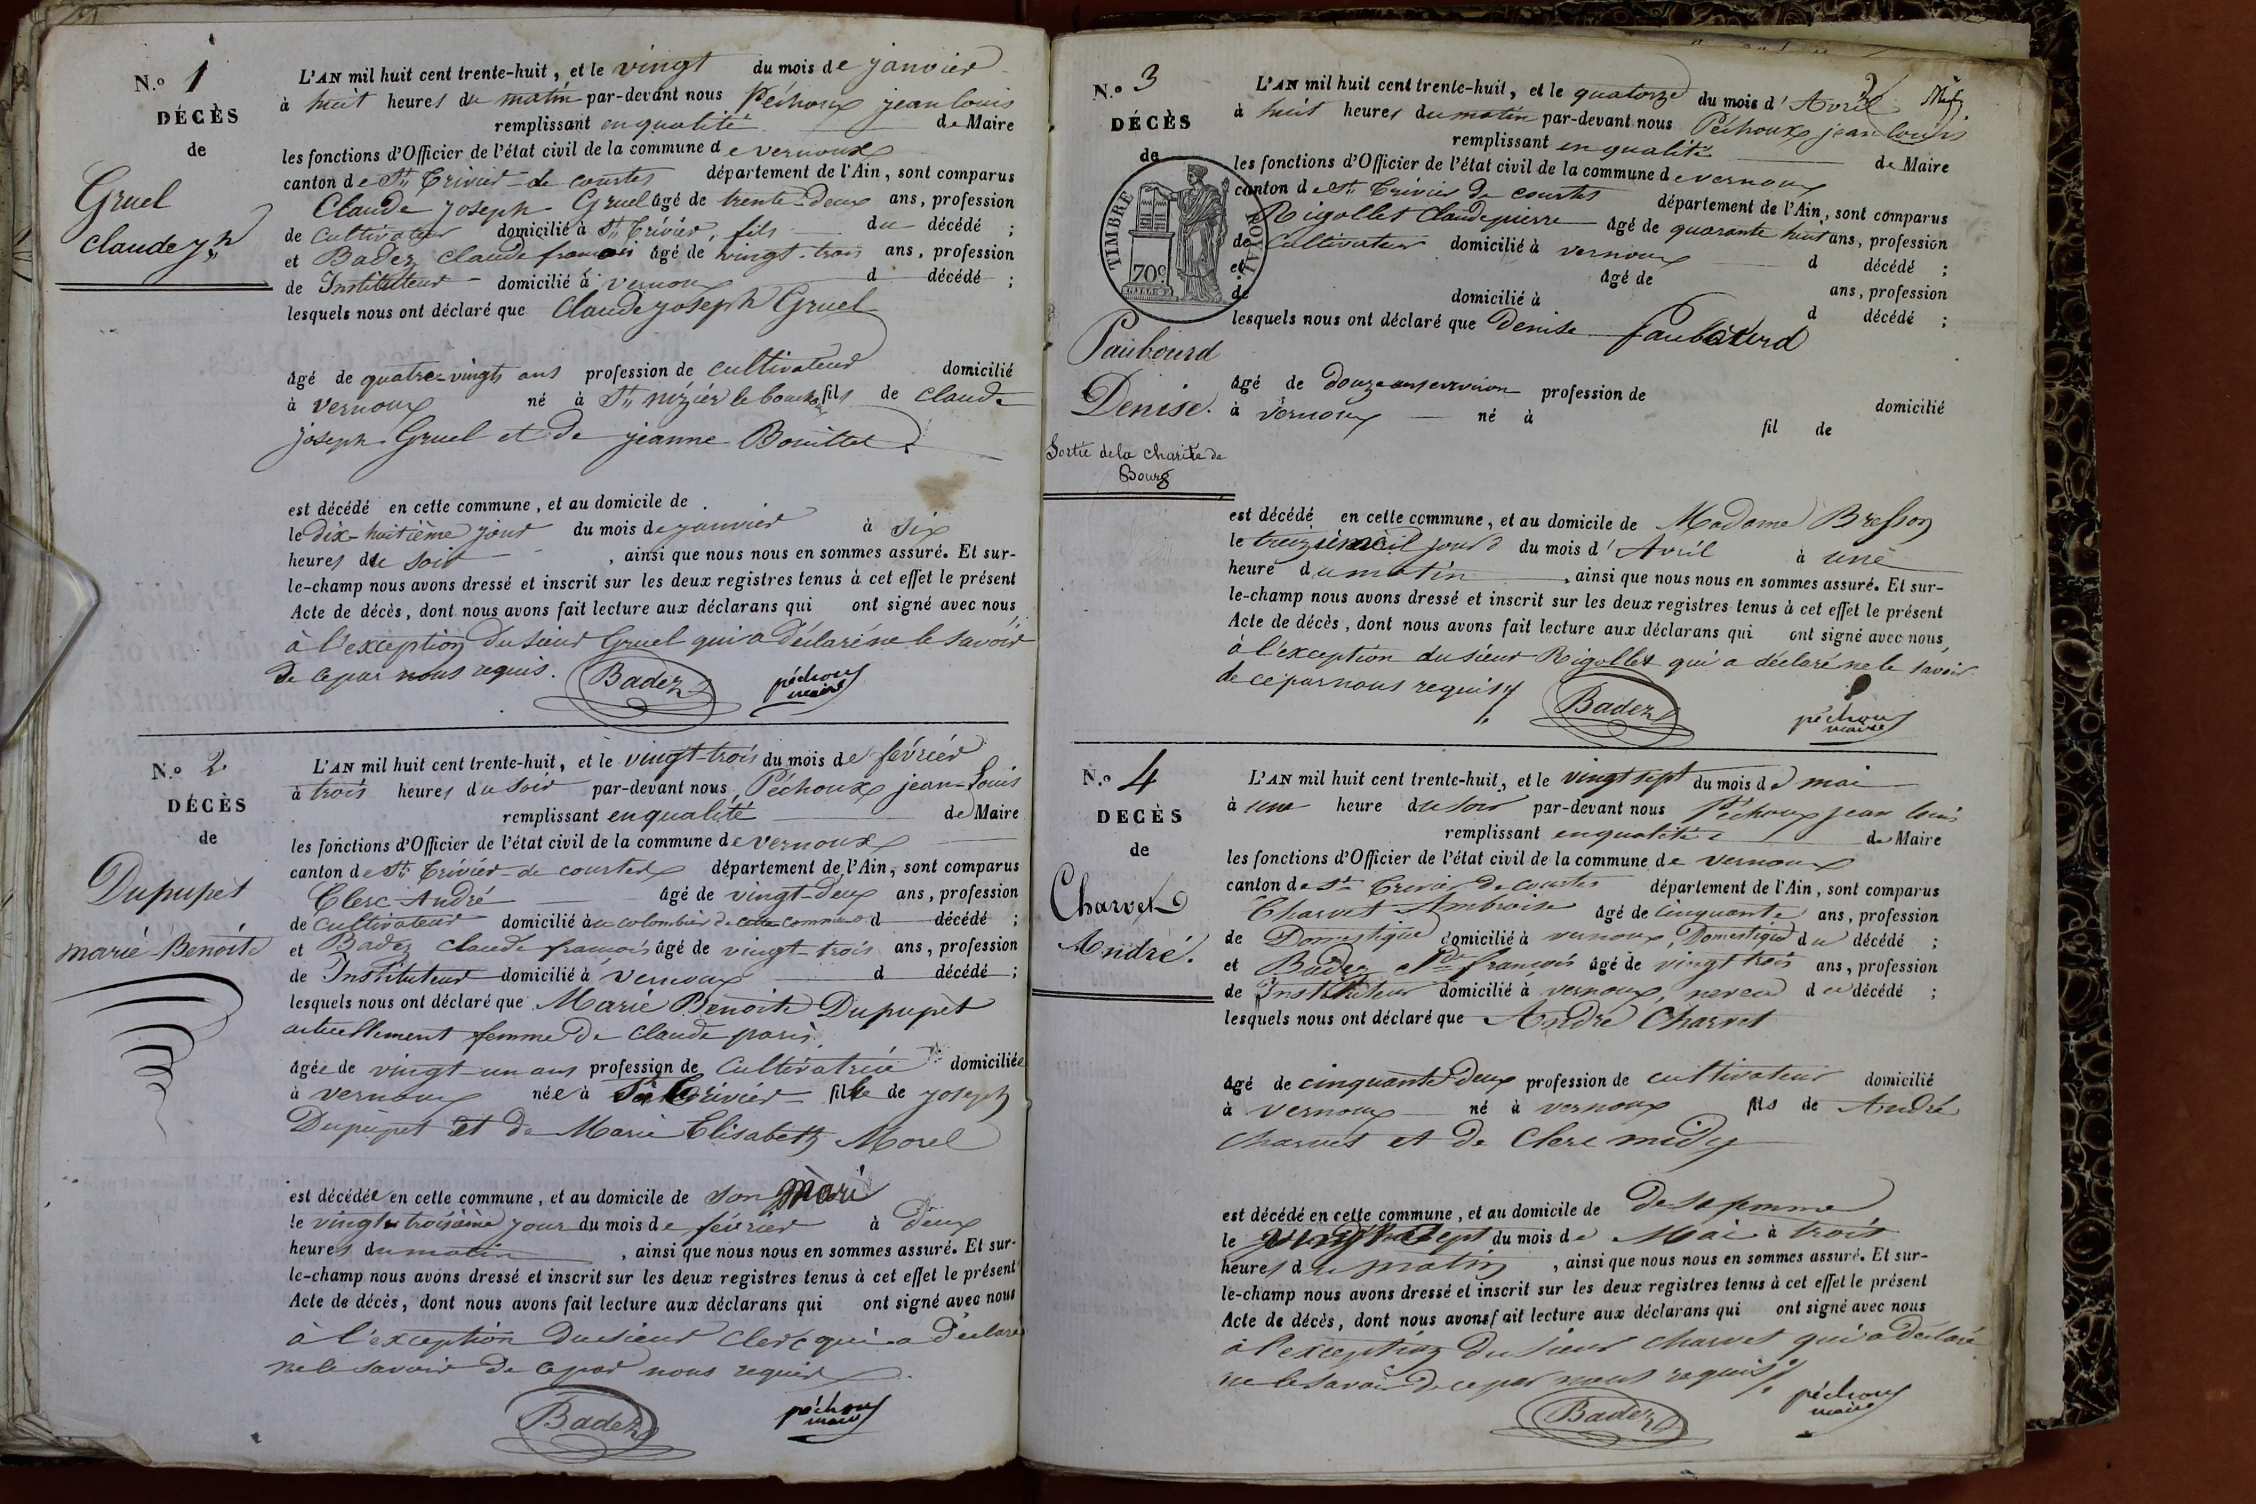 N.o 1
DÉCÈS
de
Gruel
claude jh
L'AN mil huit cent trente-huit, et le vingt du mois de janvier
à huit heures du matin par-devant nous Péchoux jean louis
remplissant en qualité de Maire
les fonctions d'Officier de l'état civil de la commune de vernoux
canton de St Trivier de courtes département de l'Ain, sont comparus
Claude Joseph Gruel âgé de trente-deux ans, profession
de cultivateur domicilié à St Trivier, fils du décédé ;
et Badez claude françois âgé de vingt-trois ans, profession
de Instituteur domicilié à vernoux d décédé ;
lesquels nous ont déclaré que Claude joseph Gruel
âgé de quatre-vingts ans profession de cultivateur domicilié
à vernoux né à St nizier le bouchoux fils de claude
joseph Gruel et de jeanne Bouillet
est décédé en cette commune, et au domicile de
le dix-huitième jour du mois de janvier à six
heures du soir , ainsi que nous nous en sommes assuré. Et sur-
le-champ nous avons dressé et inscrit sur les deux registres tenus à cet effet le présent
Acte de décès, dont nous avons fait lecture aux déclarans qui ont signé avec nous,
à l'exception du sieur Gruel qui a déclaré ne le savoir
de ce par nous requis. Badez péchoux
maire
N.o 2
DÉCÈS
de
Dupupet
marie Benoite
L'AN mil huit cent trente-huit, et le vingt-trois du mois de février
à trois heures du soir par-devant nous Péchoux jean Louis
remplissant en qualité de Maire
les fonctions d'Officier de l'état civil de la commune de vernoux
canton de St Trivier de courtes département de l'Ain, sont comparus
Clerc André âgé de vingt-deux ans, profession
de cultivateur domicilié au colombier de cette commune d décédé ;
et Badez claude françois âgé de vingt-trois ans, profession
de Instituteur domicilié à vernoux d décédé ;
lesquels nous ont déclaré que Marie Benoite Dupupet
actuellement femme de claude paris
âgée de vingt un ans profession de Cultivatrice domiciliée
à vernoux née à St Trivier fille de joseph
Dupupet et de Marie Elisabeth Morel
est décédée en cette commune, et au domicile de son mari
le vingt troisième jour du mois de février à deux
heures du matin , ainsi que nous nous en sommes assuré. Et sur-
le-champ nous avons dressé et inscrit sur les deux registres tenus à cet effet le présent
Acte de décès, dont nous avons fait lecture aux déclarans qui ont signé avec nous
à l'exception du sieur clerc qui a déclaré
ne le savoir de ce par nous requis
Badez péchoux
maire
N.o 3
DÉCÈS
de
TIMBRE ROYAL
70c
Paubourd
Denise.
Sortie de la charité de
Bourg
2
L'AN mil huit cent trente-huit, et le quatorze du mois d'Avril
à huit heures du matin par-devant nous Péchoux jean louis
remplissant en qualité de Maire
les fonctions d'Officier de l'état civil de la commune de vernoux
canton de St Trivier de courtes département de l'Ain, sont comparus
Rigollet Claude pierre âgé de quarante huit ans, profession
de Cultivateur domicilié à vernoux d décédé ;
et âgé de ans, profession
de domicilié à d décédé ;
lesquels nous ont déclaré que Denise Paubourd
âgé de douze ans environ profession de domicilié
à vernoux né à fil de
est décédé en cette commune, et au domicile de Madame Bresson
le treizième jour du mois d'Avril à une
heure du matin , ainsi que nous nous en sommes assuré. Et sur-
le-champ nous avons dressé et inscrit sur les deux registres tenus à cet effet le présent
Acte de décès, dont nous avons fait lecture aux déclarans qui ont signé avec nous,
à l'exception du sieur Rigollet qui a déclaré ne le savoir
de ce par nous requis Badez péchoux
maire
N.o 4
DÉCÈS
de
Charvet
André.
L'AN mil huit cent trente-huit, et le vingt sept du mois de mai
à une heure du soir par-devant nous Péchoux jean louis
remplissant en qualité de Maire
les fonctions d'Officier de l'état civil de la commune de vernoux
canton de St Trivier de courtes département de l'Ain, sont comparus
Charvet Ambroise âgé de cinquante ans, profession
de Domestique domicilié à vernoux, Domestique du décédé ;
et Badez Cde françois âgé de vingt trois ans, profession
de Instituteur domicilié à vernoux, neveu du décédé ;
lesquels nous ont déclaré que André Charvet
âgé de cinquante deux profession de cultivateur domicilié
à vernoux né à vernoux fils de André
charvet et de Clerc midy
est décédé en cette commune, et au domicile de de sa femme
le vingt sept du mois de Mai à trois
heures du matin , ainsi que nous nous en sommes assuré. Et sur-
le-champ nous avons dressé et inscrit sur les deux registres tenus à cet effet le présent
Acte de décès, dont nous avons fait lecture aux déclarans qui ont signé avec nous
à l'exception du sieur charvet qui a déclaré
ne le savoir de ce par nous requis
Badez péchoux
maire